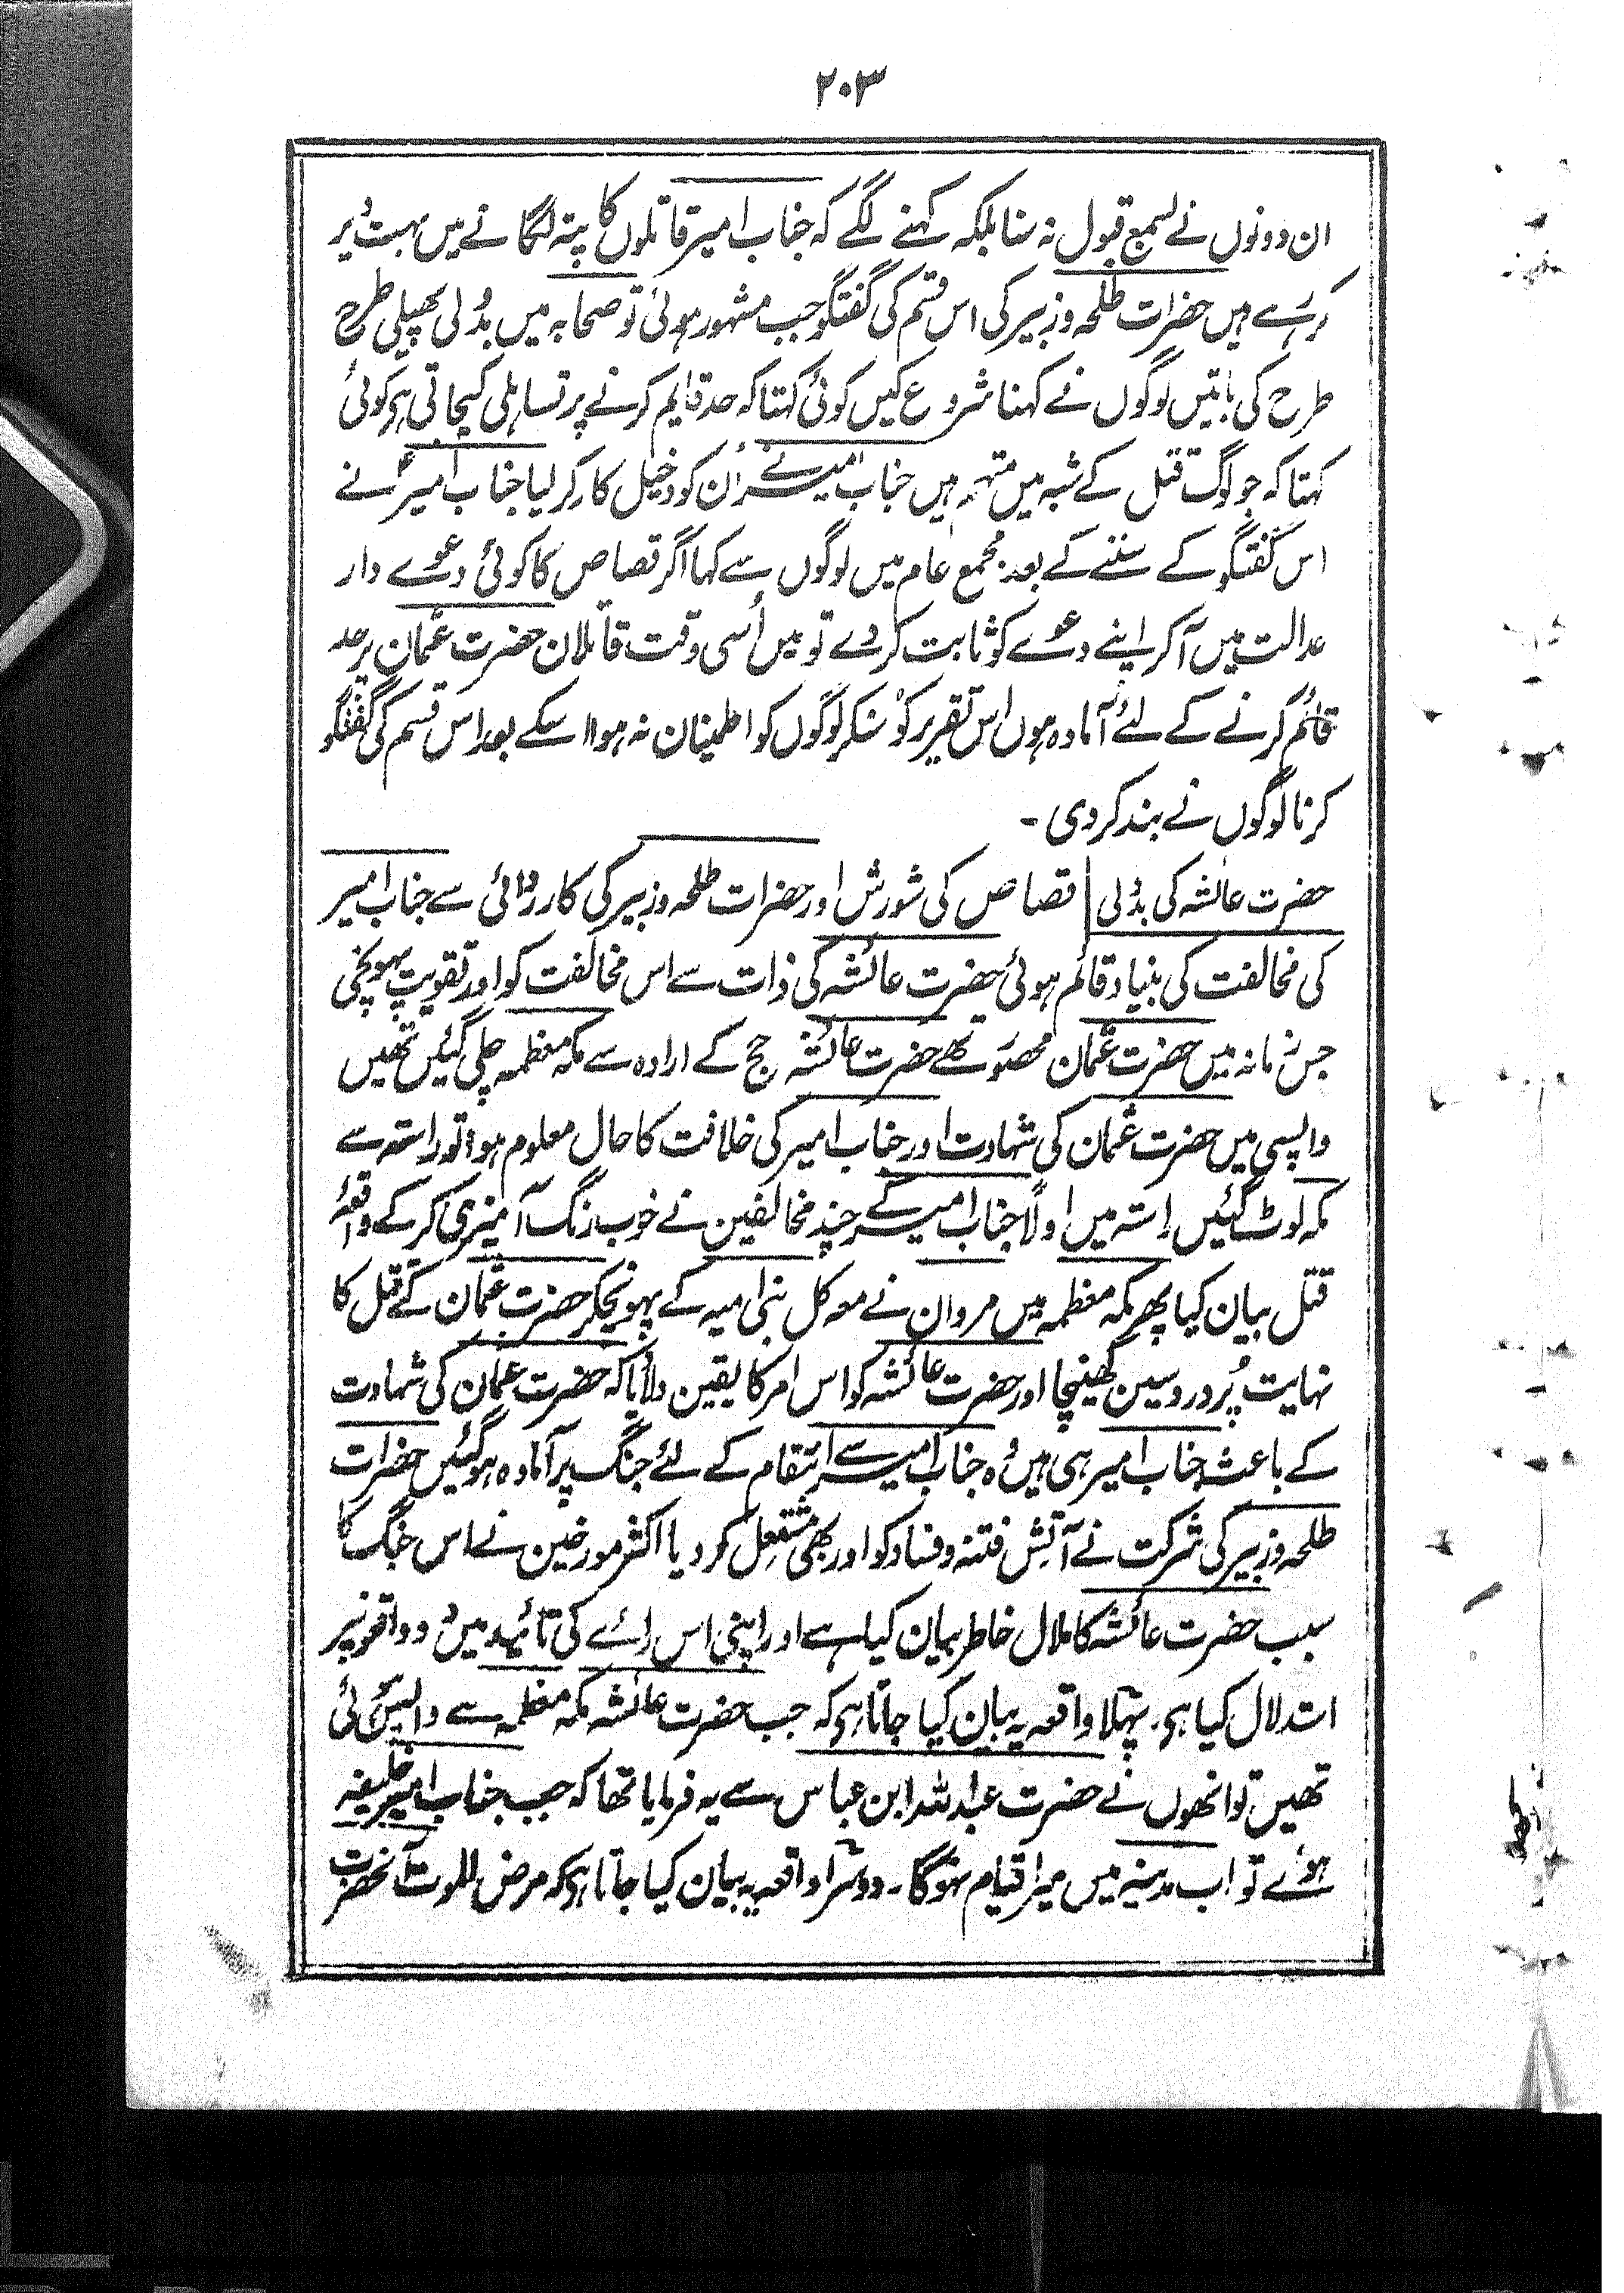 ۲۰۳
ان دونوں نے بسمع قبول نہ سنا بلکہ کہنے لگے کہ جناب امیر قاتلوں کا پتہ لگانے میں بہت دیر
کر رہے ہیں حضرات طلحہ و زبیر کی اس قسم کی گفتگو جب مشہور ہوئی تو صحابہ میں بددلی پھیلی طرح
طرح کی باتیں لوگوں نے کہنا شروع کیں کوئی کہتا کہ حد قایم کرنے پر تساہلی کیجاتی ہو کوئی
کہتا کہ جو لوگ قتل کے شبہ میں متہم ہیں جناب امیر نے اُن کو دخیل کار کر لیا جناب امیرؑ نے
اس گفتگو کے سننے کے بعد مجمع عام میں لوگوں سے کہا اگر قصاص کا کوئی دعوے دار
عدالت میں آکر اپنے دعوے کو ثابت کر دے تو میں اُسی وقت قاتلان حضرت عثمان پر حد
قائم کرنے کے لئے آمادہ ہوں اس تقریر کو سنکر لوگوں کو اطمینان نہ ہوا اسکے بعد اس قسم کی گفتگو
کرنا لوگوں نے بند کر دی ۔
حضرت عائشہ کی بددلی | قصاص کی شورش اور حضرات طلحہ و زبیر کی کارروائی سے جناب امیر
کی مخالفت کی بنیاد قائم ہوئی حضرت عائشہ کی ذات سے اس مخالفت کو اور تقویت پہونچی
جس زمانہ میں حضرت عثمان محصور تھے حضرت عائشہ حج کے ارادہ سے مکہ معظمہ چلی گئیں تھیں
واپسی میں حضرت عثمان کی شہادت اور جناب امیر کی خلافت کا حال معلوم ہوا تو راستہ سے
مکہ لوٹ گئیں راستہ میں اولاً جناب امیر کے چند مخالفین نے خوب رنگ آمیزی کر کے واقعۂ
قتل بیان کیا پھر مکہ معظمہ میں مروان نے معہ کل بنی امیہ کے پہونچکر حضرت عثمان کے قتل کا
نہایت پُر درد سین کھینچا اور حضرت عائشہ کو اس امر کا یقین دلایا کہ حضرت عثمان کی شہادت
کے باعث جناب امیر ہی ہیں وہ جناب امیر سے انتقام کے لئے جنگ پر آمادہ ہو گئیں حضرات
طلحہ و زبیر کی شرکت نے آتش فتنہ و فساد کو اور بھی مشتعل کر دیا اکثر مورخین نے اس جنگ کا
سبب حضرت عائشہ کا ملال خاطر بیان کیا ہے اور اپنی اس رائے کی تائید میں دو واقعونپر
استدلال کیا ہو۔ پہلا واقعہ یہ بیان کیا جاتا ہو کہ جب حضرت عائشہ مکہ معظمہ سے واپس آئی
تھیں تو انھوں نے حضرت عبداللہ ابن عباس سے یہ فرمایا تھا کہ جب جناب امیر خلیفہ
ہوئے تو اب مدینہ میں میرا قیام نہوگا۔ دوسرا واقعہ یہ بیان کیا جاتا ہو کہ مرض الموت آنحضرت